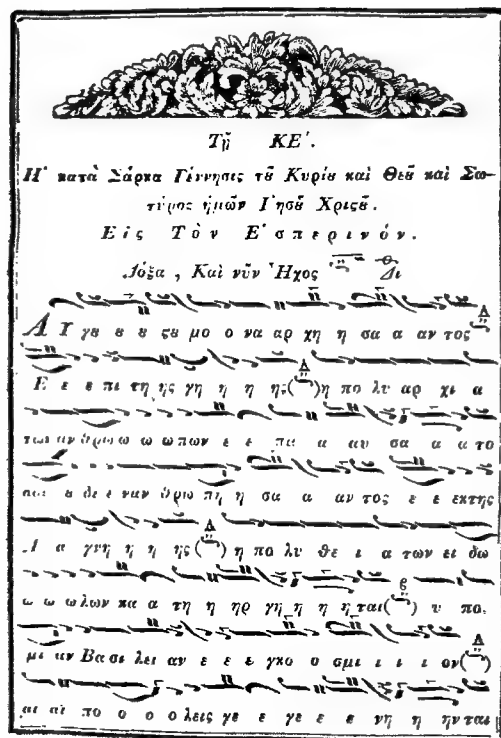 Τῇ ΚΕ'.
Ἡ κατὰ Σάρκα Γέννησις τȣ͂ Κυρίȣ καὶ Θεȣ͂ καὶ Σω-
τῆρος ἡμῶν Ἰησȣ͂ Χριϛȣ͂.
Εἰς Τὸν Ἑσπερινόν.
Δόξα, Καὶ νῦν Ἦχος Δι
Α Υ γȣ ȣ ȣ ϛȣ μο ο να αρ χη η σα α αν τος
Ε ε ε πι τη ης γη η η ης( )η πο λυ αρ χι α
των αν θρω ω ω ωπων ε ε πα α αυ σα α α το
και ȣ δε ε ναν θρω πη η σα α αν τος ε ε εκτης
Α α γνη η η ης( ) η πο λυ θε ι α των ει δω
ω ω ωλων κα α τη η ηρ γη η η ηται( ) υ πο,
μι αν Βα σι λει αν ε ε ε γκο ο σμι ι ι ι ον( )
αι αι πο ο ο ο λεις γε ε γε ε ε νη η ηνται